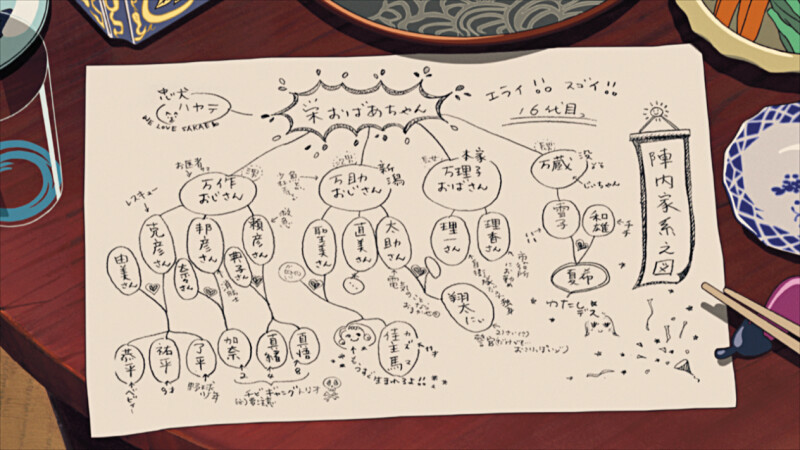 忠犬
ハヤテ
WE LOVE SAKAE
栄おばあちゃん
エライ!! スゴイ!!
16代目
陣内家系之図
お医者
万作
おじさん
新潟
万助
おじさん
本家
万理子
おばさん
万蔵
じいちゃん
レスキュー
克彦
さん
邦彦
さん
頼彦
さん
救急
聖美
さん
直美
さん
太助
さん
理一
さん
理香
さん
市役所
雪子
和雄
由美
さん
奈々
さん
典子
さん
夏希
わたしデス
翔太
にぃ
恭平
祐平
了平
加奈
真緒
真悟
佳主馬
カズマ
ベビー
2
8
チビギャングトリオ
もうすぐ生まれるよ!!